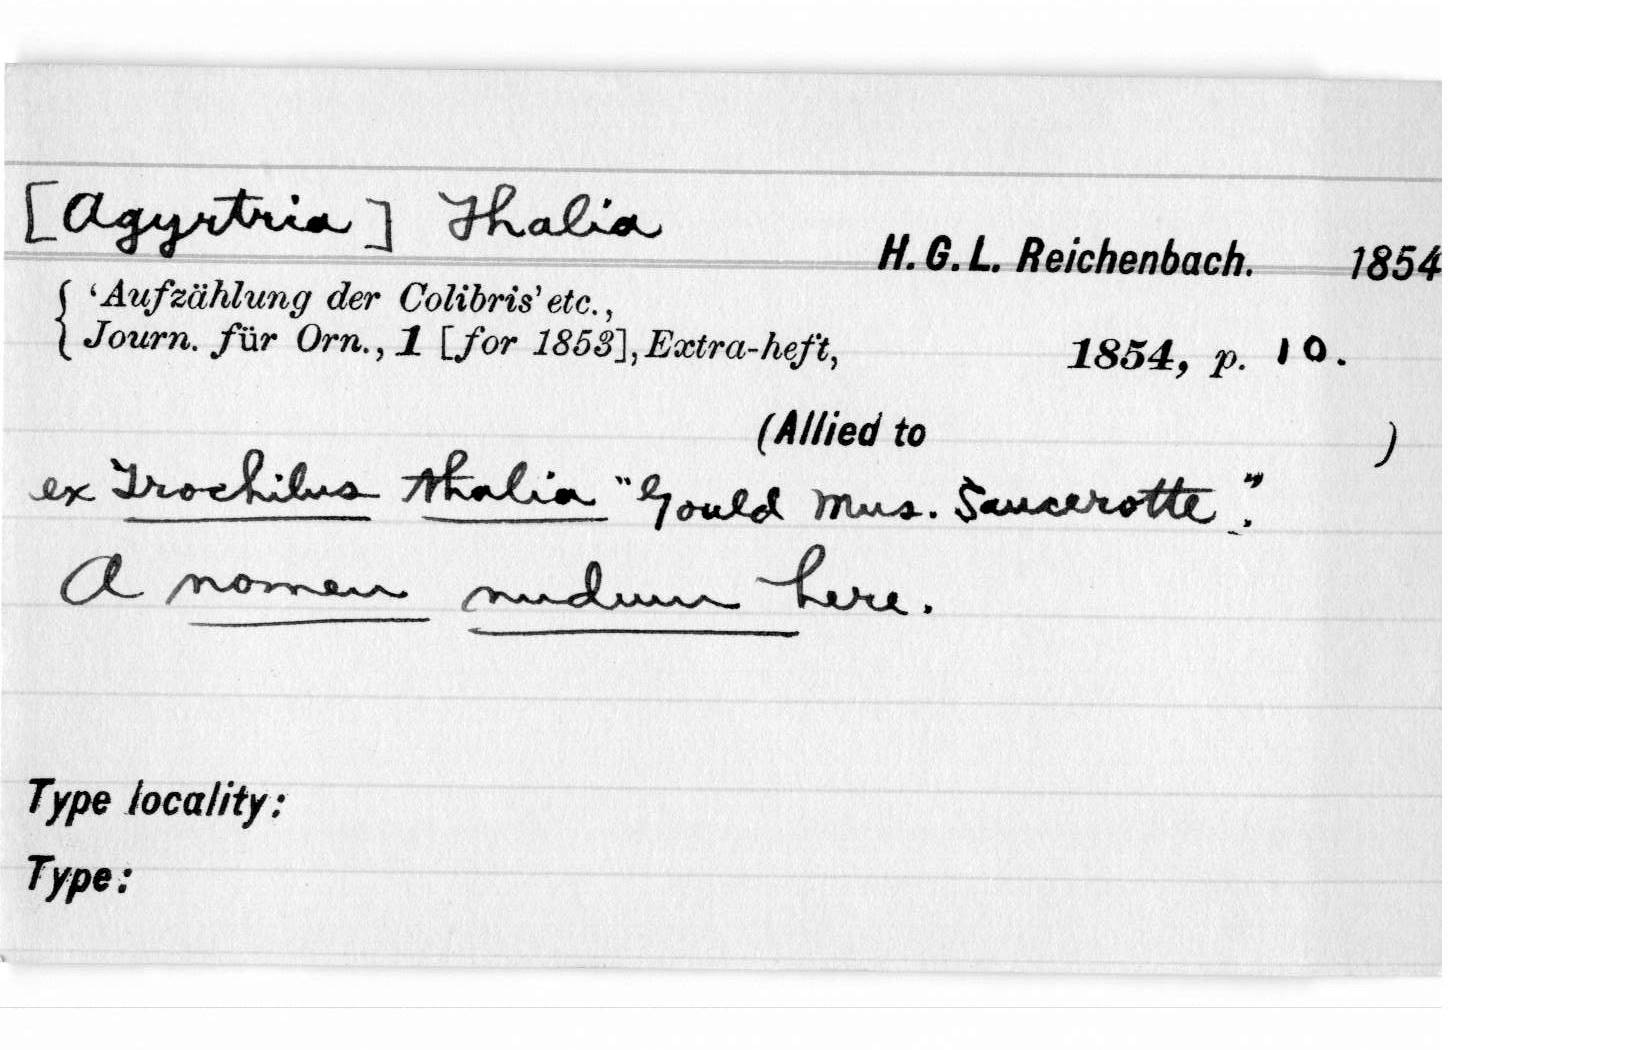 [Agyrtria] Thalia
H. G. L. Reichenbach. 1854
‘Aufzählung der Colibris’ etc.,
Journ. für Orn., 1 [for 1853], Extra-heft, 1854, p. 10.
(Allied to )
ex Trochilus thalia "Gould Mus. Saucerotte".
A nomen nudum here.
Type locality:
Type: